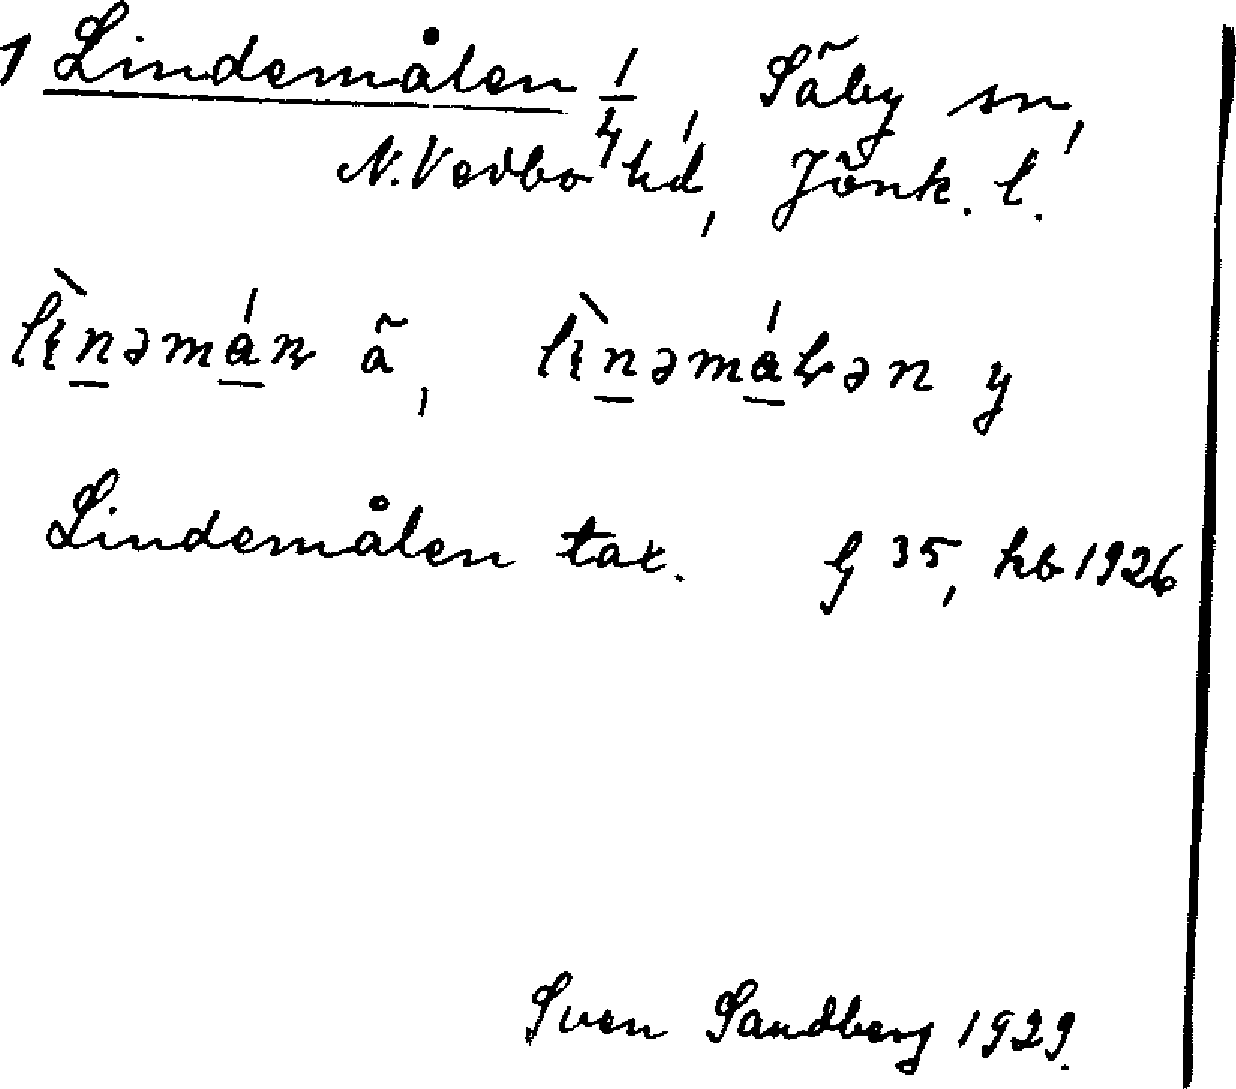 1 Lindemålen 1/4, Säby sn,
N. Vedbo hd, Jönk. l.
lìnəmán ä, lìnəmáɫən y
Lindemålen tax. Gj 35, hb 1926
Sven Sandberg 1929.